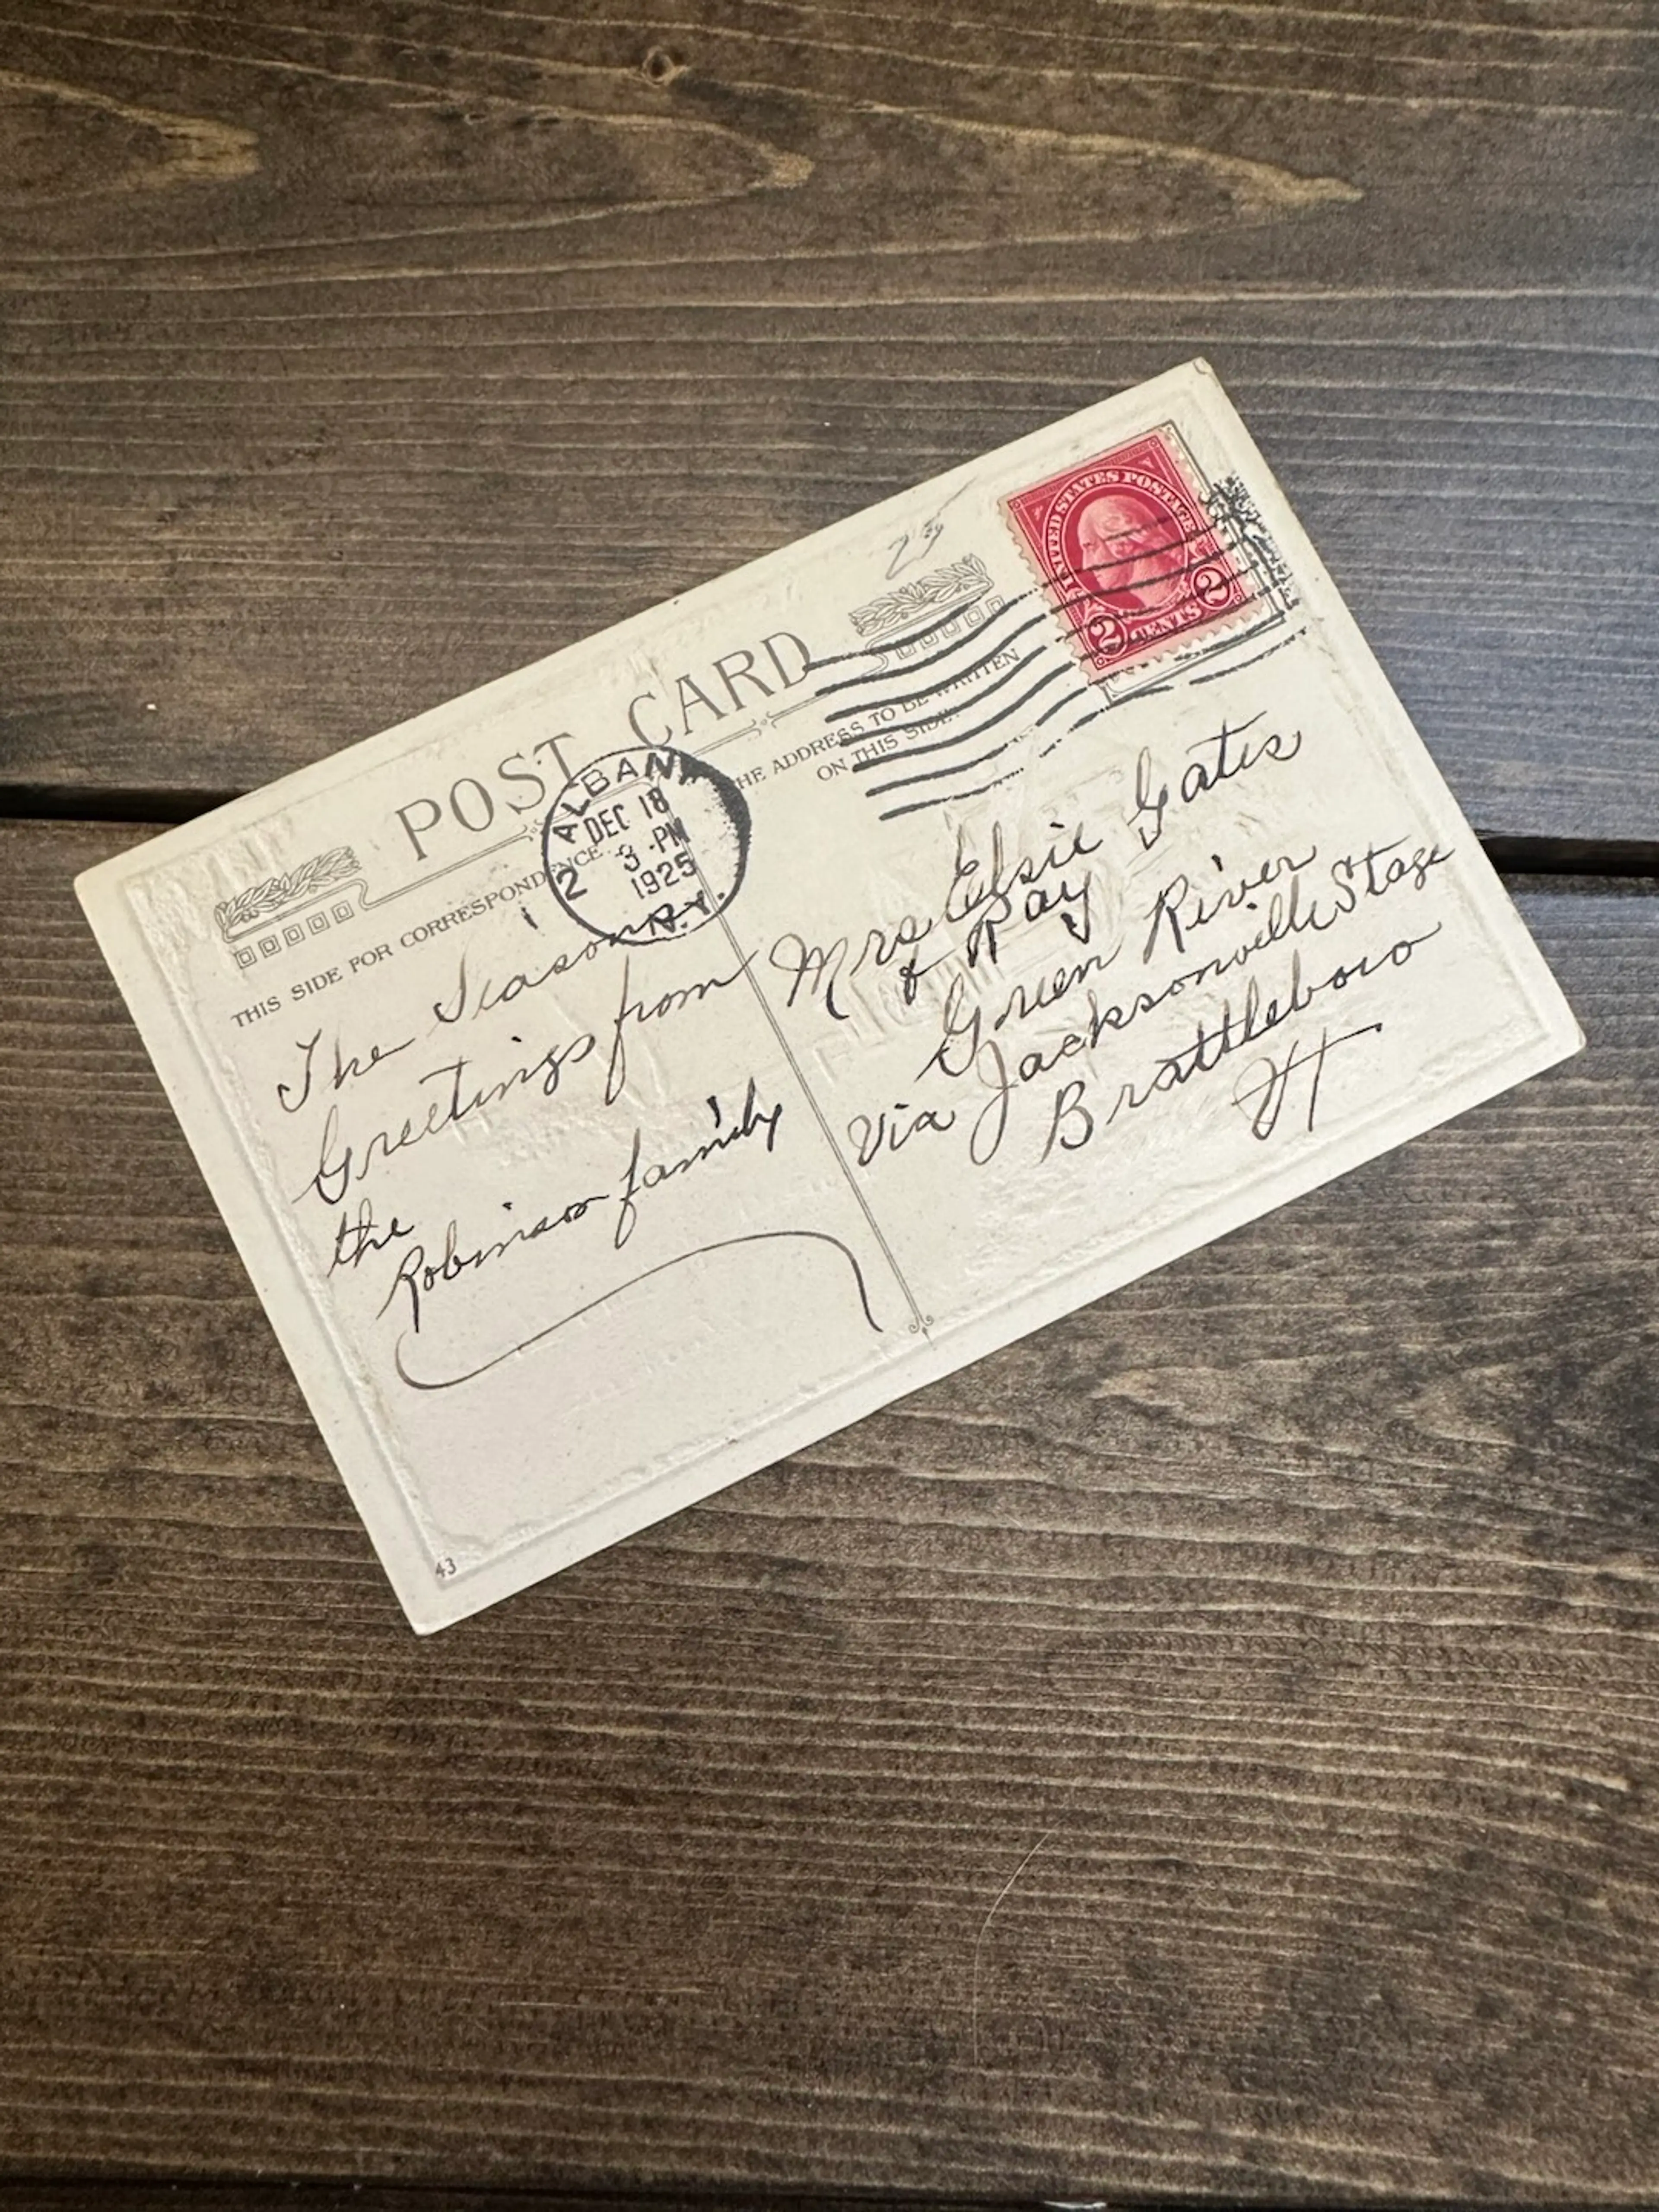 POST CARD
THIS SIDE FOR CORRESPONDENCE
THE ADDRESS TO BE WRITTEN
ON THIS SIDE.
UNITED STATES POSTAGE
2 CENTS 2
ALBANY
DEC 18
3 - PM
1925
2
N.Y.
The Seasons
Greetings from
the
Robinson family
Mrs Elsie Gates
& Ray
Green River
Via Jacksonville Stage
Brattleboro
Vt
43